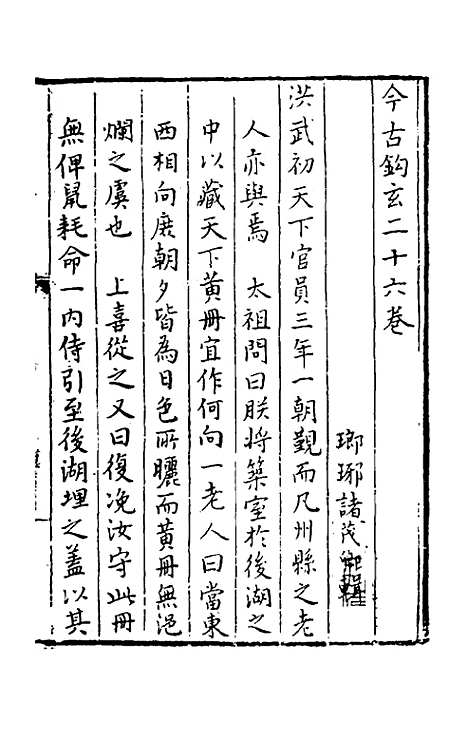 今古鈎玄二十六卷
瑯琊諸茂卿輯
洪武初天下官員三年一朝覲而凡州縣之老
人亦與焉 太祖問曰朕將築室於後湖之
中以藏天下黃冊宜作何向一老人曰當東
西相向庶朝夕皆為日色所曬而黃冊無浥
爛之虞也 上喜從之又曰復凂汝守此冊
無俾鼠耗命一內侍引至後湖埋之蓋以其